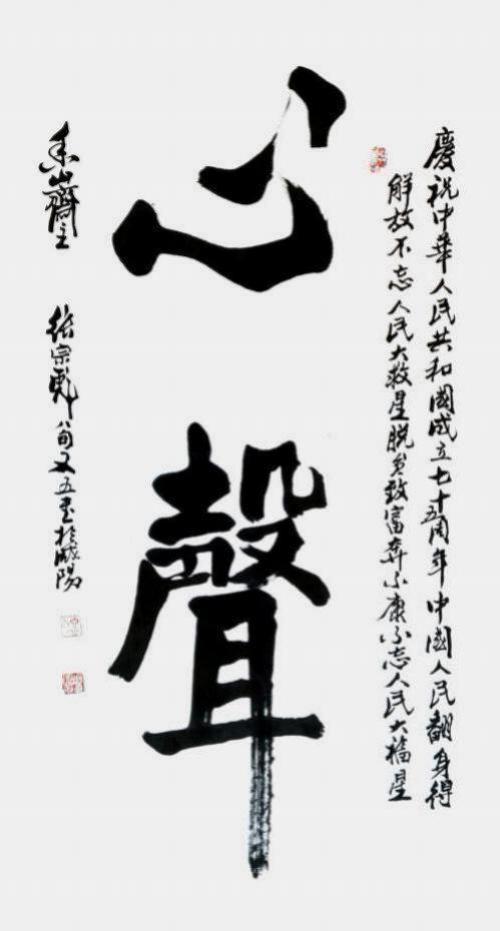 慶祝中華人民共和國成立七十五周年中國人民翻身得
解放不忘人民大救星脫貧致富奔小康不忘人民大福星
心聲
香山齋主
張宗彪八旬又五書於咸陽